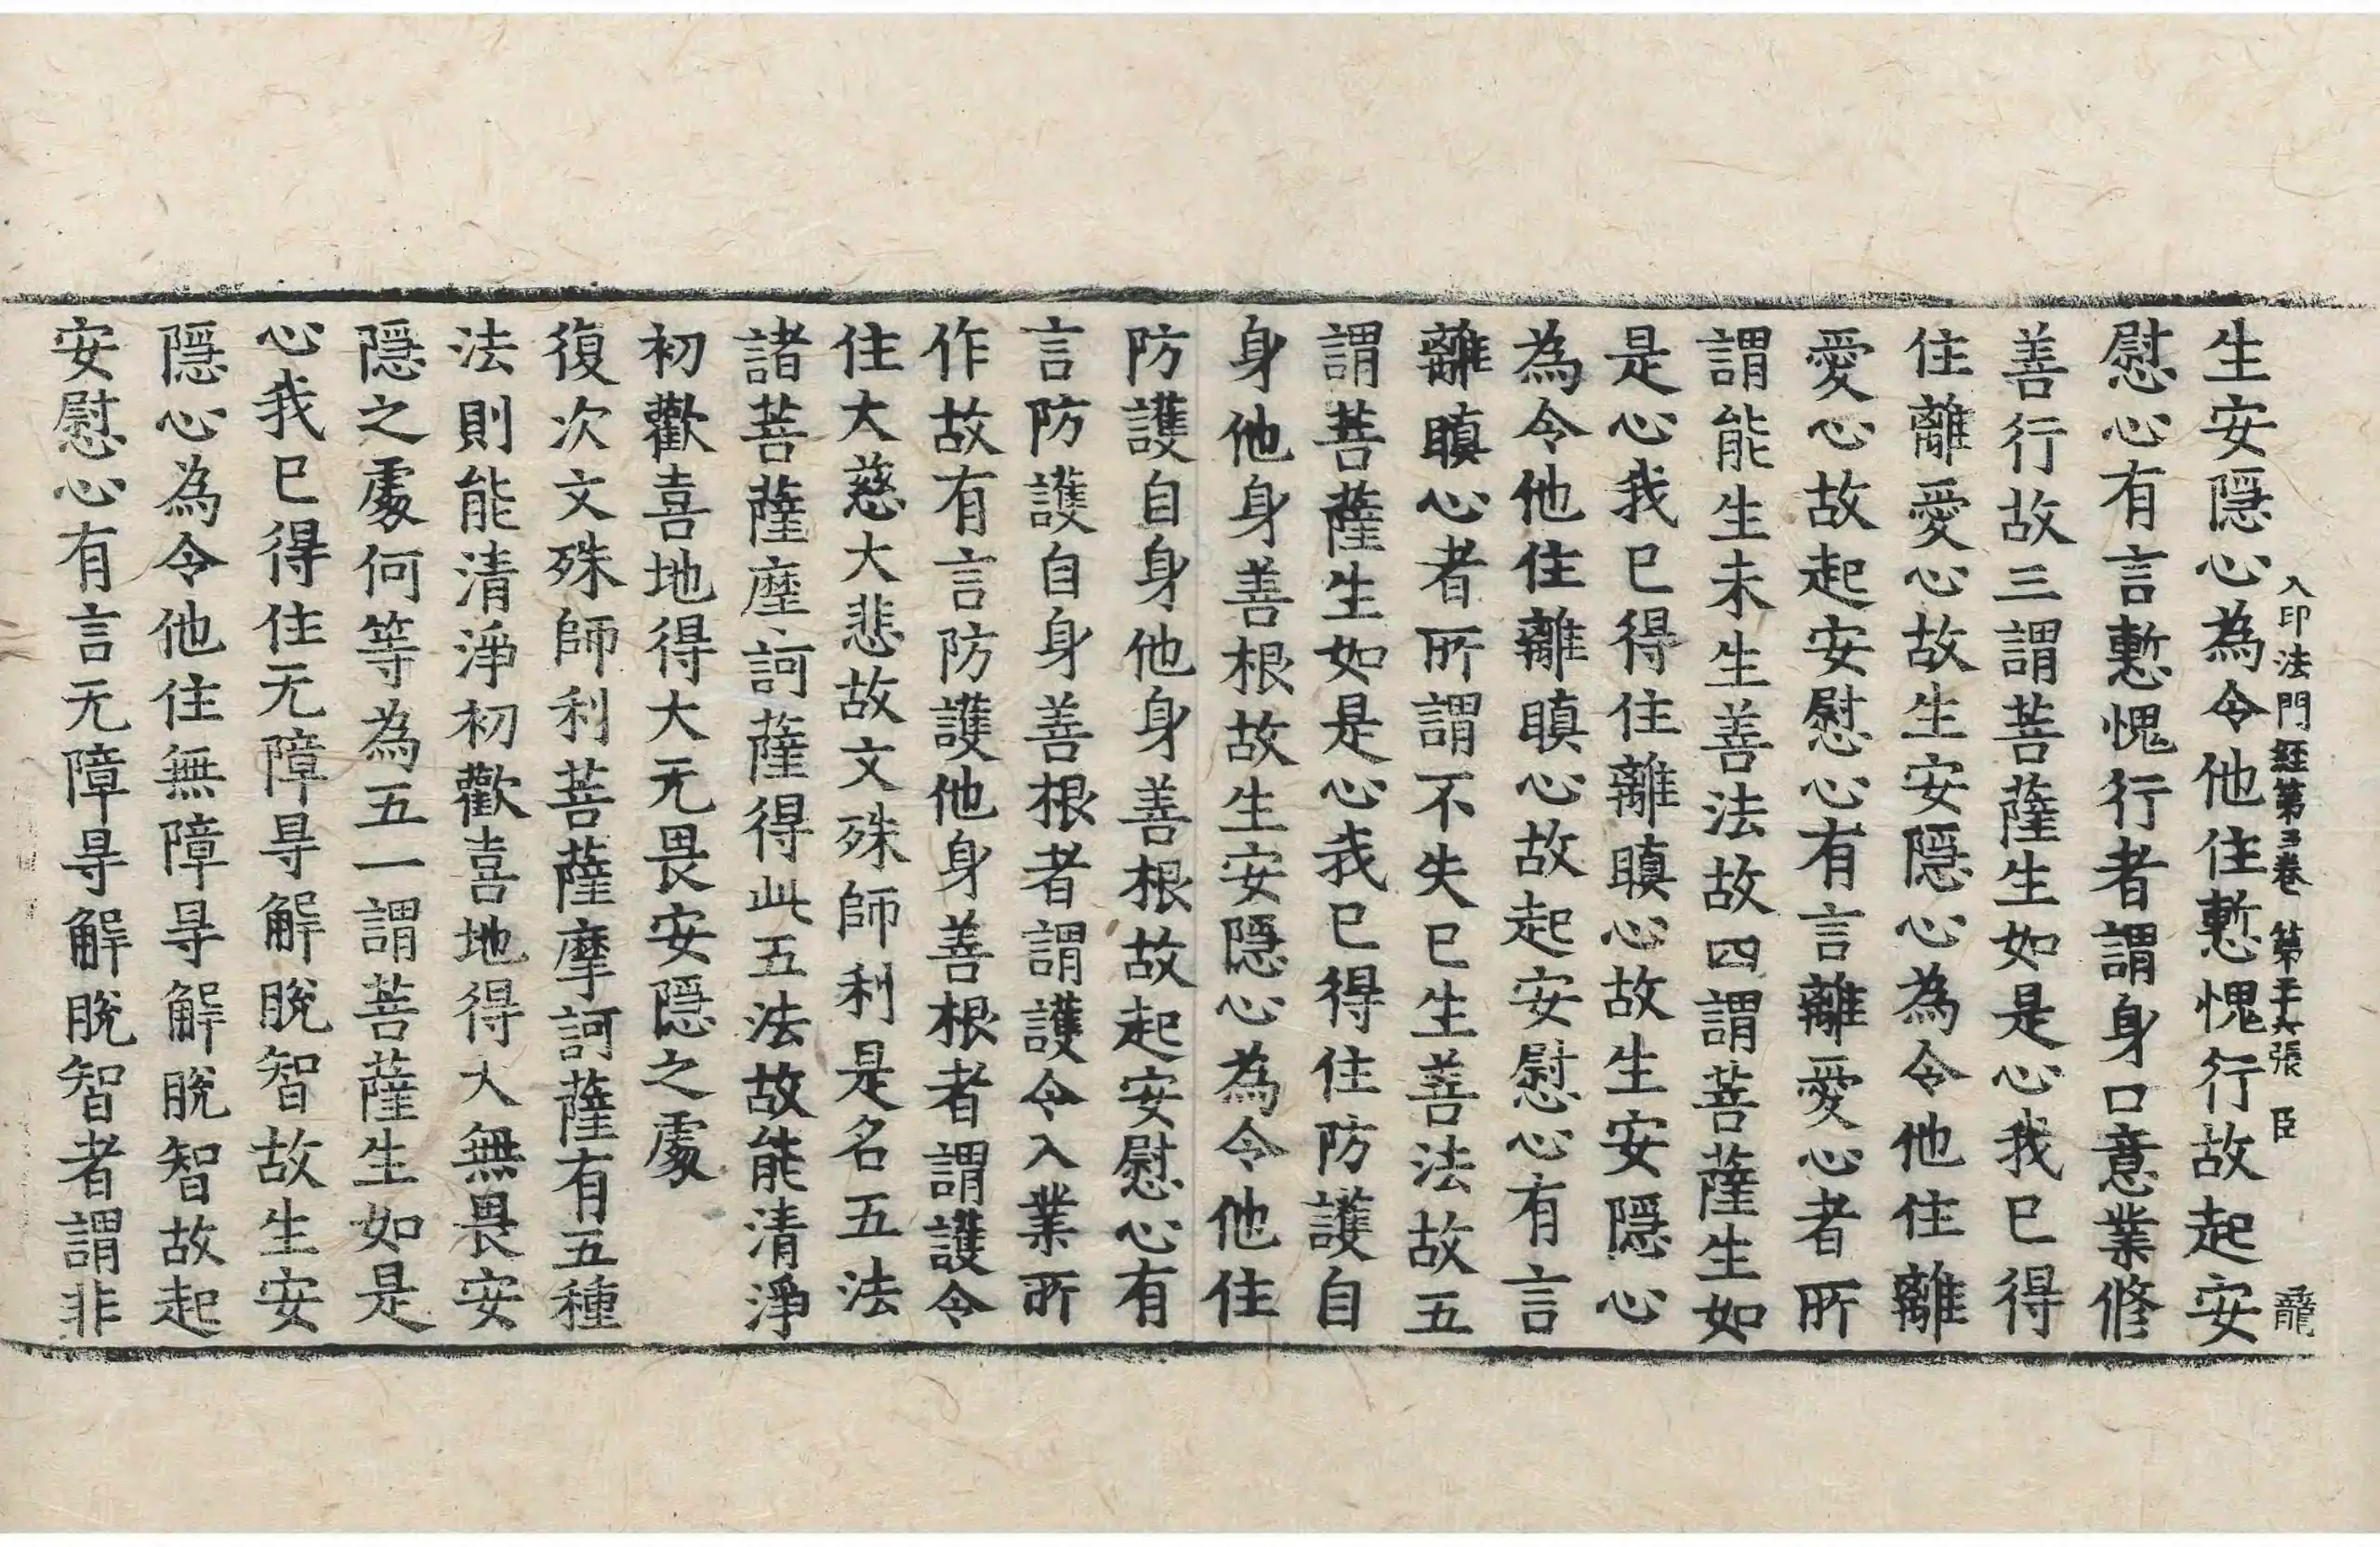 生安隱心為令他住慙愧行故起安
入印法門経第三卷 第二十六張 臣 龍
慰心有言慙愧行者謂身口意業修
善行故三謂菩薩生如是心我已得
住離愛心故生安隱心為令他住離
愛心故起安慰心有言離愛心者所
謂能生未生善法故四謂菩薩生如
是心我已得住離瞋心故生安隱心
為令他住離瞋心故起安慰心有言
離瞋心者所謂不失已生善法故五
謂菩薩生如是心我已得住防護自
身他身善根故生安隱心為令他住
防護自身他身善根故起安慰心有
言防護自身善根者謂護令入業所
作故有言防護他身善根者謂護令
住大慈大悲故文殊師利是名五法
諸菩薩塵訶薩得此五法故能清淨
初歡喜地得大无畏安隱之處
復次文殊師利菩薩摩訶薩有五種
法則能清淨初歡喜地得大無畏安
隱之處何等為五一謂菩薩生如是
心我已得住无障㝵解脫智故生安
隱心為令他住無障㝵解脫智故起
安慰心有言无障㝵解脫智者謂非